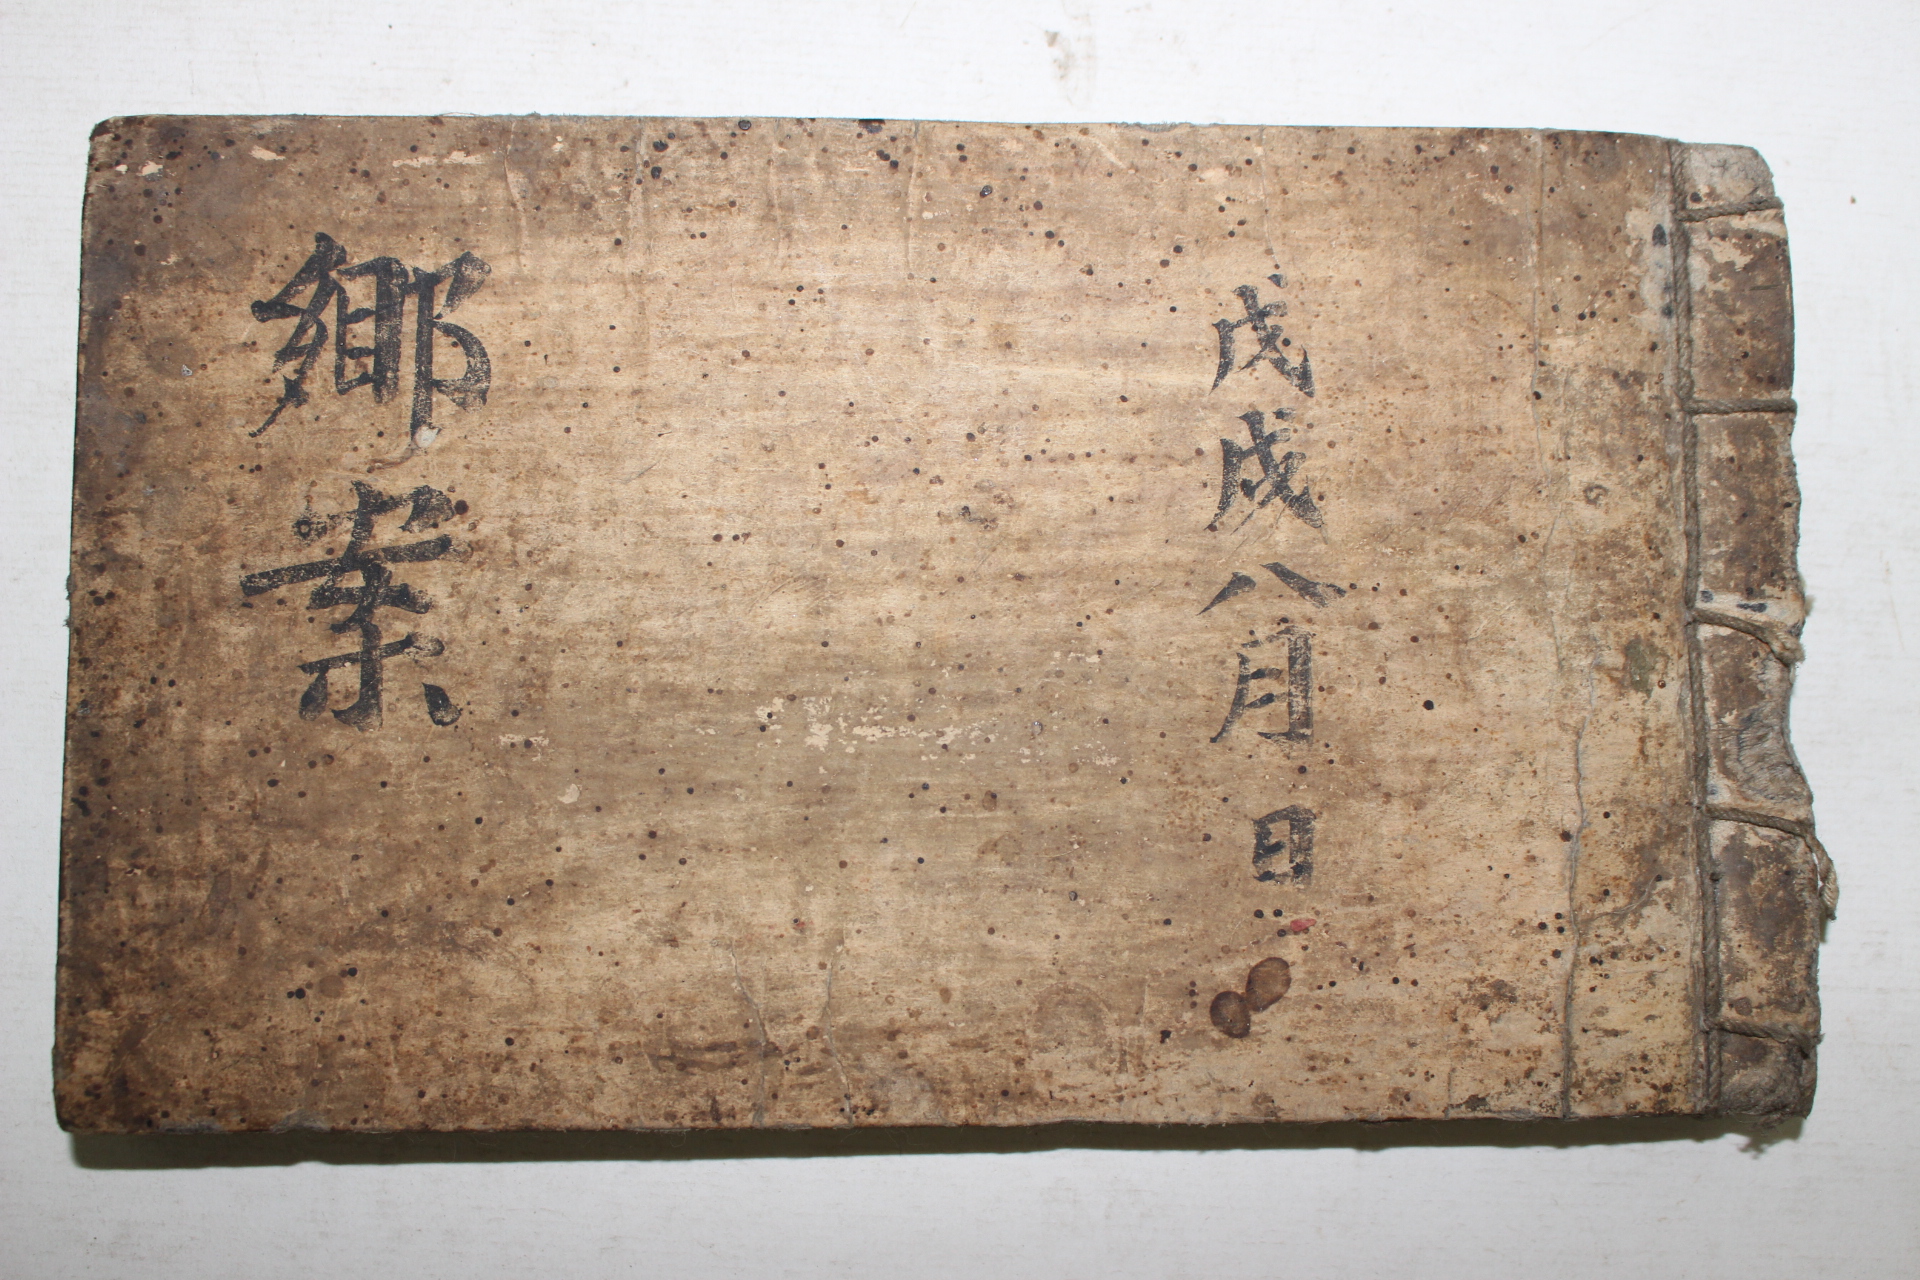 戊戌八月 日
鄉案